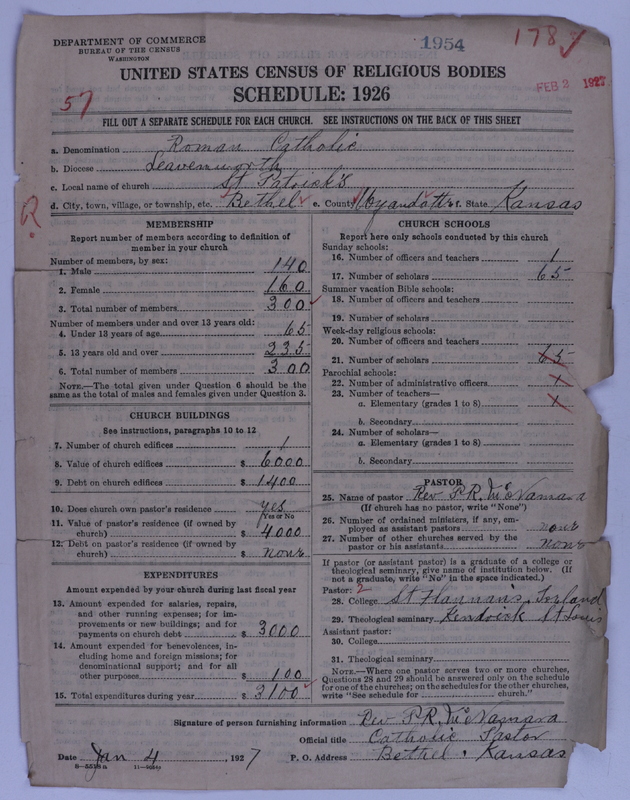 DEPARTMENT OF COMMERCE
BUREAU OF THE CENSUS
WASHINGTON
1954
178
UNITED STATES CENSUS OF RELIGIOUS BODIES
SCHEDULE: 1926
FEB 2 1927
57
FILL OUT A SEPARATE SCHEDULE FOR EACH CHURCH. SEE INSTRUCTIONS ON THE BACK OF THIS SHEET
a. Denomination Roman Catholic
b. Diocese Leavenworth
c. Local name of church St Patrick's
d. City, town, village, or township, etc. Bethel e. County Wyandotte f. State Kansas
R.
MEMBERSHIP
Report number of members according to definition of
member in your church
Number of members, by sex:
1. Male 140
2. Female 160
3. Total number of members 300
Number of members under and over 13 years old:
4. Under 13 years of age 65
5. 13 years old and over 235
6. Total number of members 300
NOTE.—The total given under Question 6 should be the
same as the total of males and females given under Question 3.
CHURCH BUILDINGS
See instructions, paragraphs 10 to 12
7. Number of church edifices 1
8. Value of church edifices $ 6000
9. Debt on church edifices $ 1400
10. Does church own pastor's residence yes
Yes or No
11. Value of pastor's residence (if owned by
church) $ 4000
12. Debt on pastor's residence (if owned by
church) $ none
EXPENDITURES
Amount expended by your church during last fiscal year
13. Amount expended for salaries, repairs,
and other running expenses; for im-
provements or new buildings; and for
payments on church debt $ 3000
14. Amount expended for benevolences, in-
cluding home and foreign missions; for
denominational support; and for all
other purposes $ 100
15. Total expenditures during year $ 3100
CHURCH SCHOOLS
Report here only schools conducted by this church
Sunday schools:
16. Number of officers and teachers 1
17. Number of scholars 65
Summer vacation Bible schools:
18. Number of officers and teachers
19. Number of scholars
Week-day religious schools:
20. Number of officers and teachers
21. Number of scholars 65
Parochial schools:
22. Number of administrative officers 1
23. Number of teachers—
a. Elementary (grades 1 to 8) 1
b. Secondary
24. Number of scholars—
a. Elementary (grades 1 to 8)
b. Secondary
PASTOR
25. Name of pastor Rev P.R. McNamara
(If church has no pastor, write "None")
26. Number of ordained ministers, if any, em-
ployed as assistant pastors none
27. Number of other churches served by the
pastor or his assistants none
If pastor (or assistant pastor) is a graduate of a college or
theological seminary, give name of institution below. (If
not a graduate, write "No" in the space indicated.)
Pastor: 2
28. College St Flannan's Ireland
29. Theological seminary Kendrick St Louis
Assistant pastor:
30. College
31. Theological seminary
NOTE.—Where one pastor serves two or more churches,
Questions 28 and 29 should be answered only on the schedule
for one of the churches; on the schedules for the other churches,
write "See schedule for church."
Signature of person furnishing information Rev P.R. McNamara
Official title Catholic Pastor
Date Jan 4, 1927 P. O. Address Bethel, Kansas